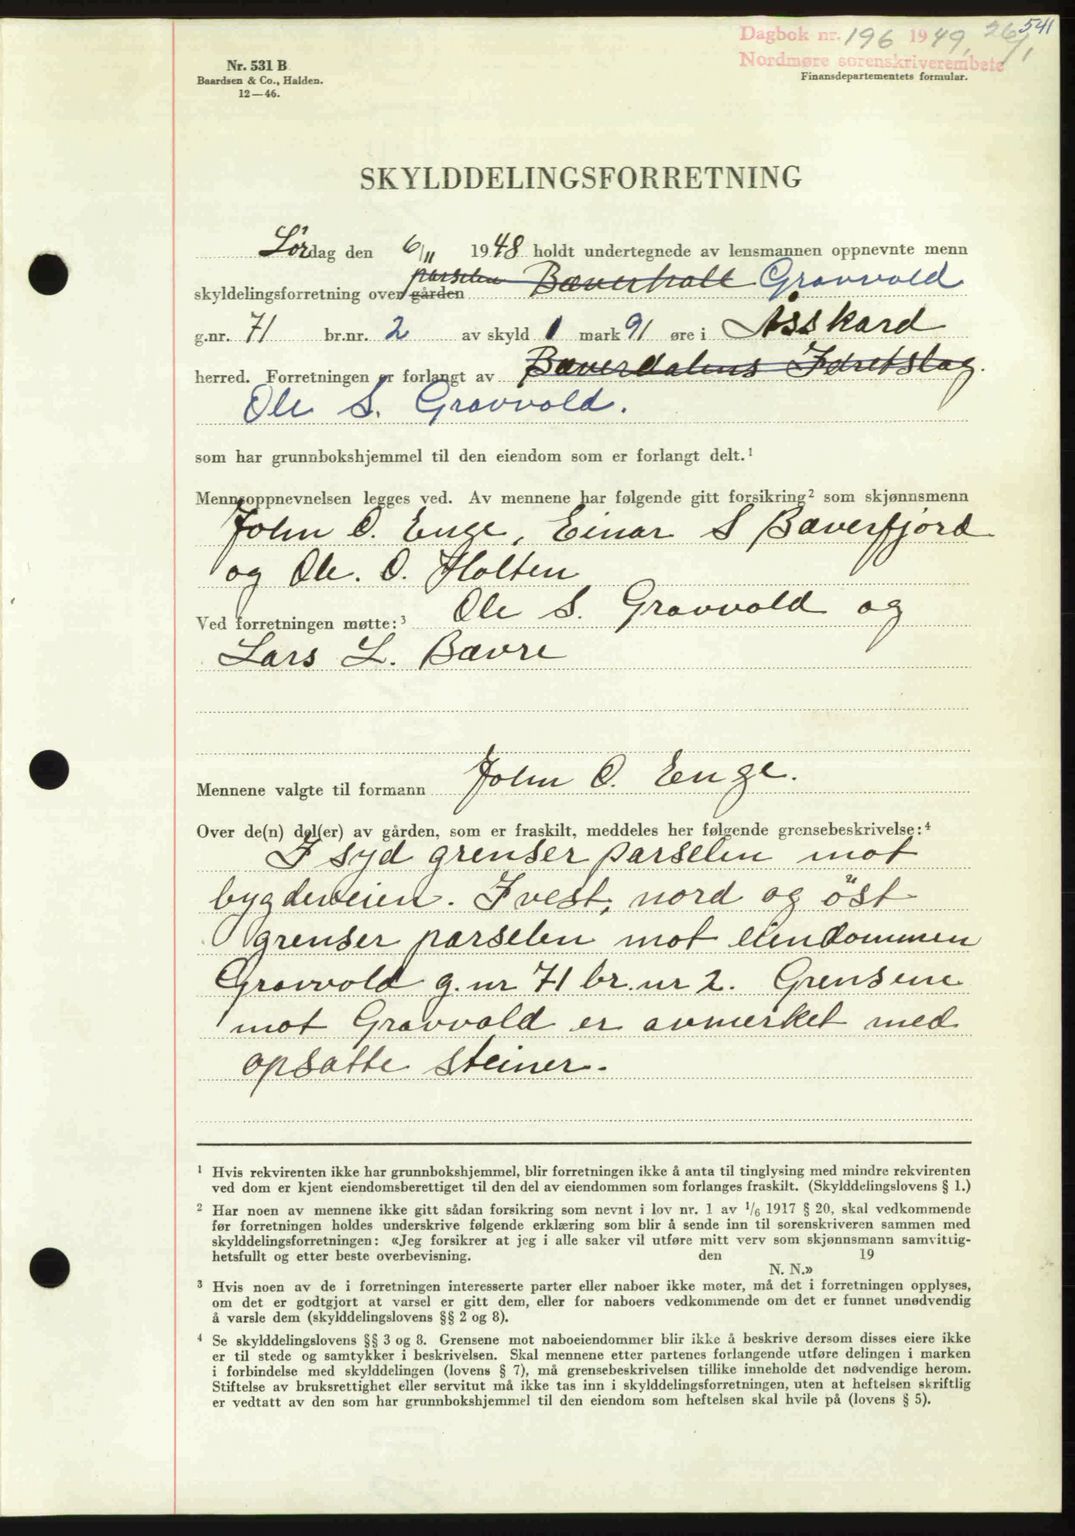 541
Dagbok nr. 196 1949, 26/1
Nordmøre sorenskriverembete
Nr. 531 B
Baardsen & Co., Halden.
12—46.
Finansdepartementets formular.
SKYLDDELINGSFORRETNING
Lørdag den 6/11 1948 holdt undertegnede av lensmannen oppnevnte menn
parselen
skyldelingsforretning over gården Bæverhall Gravvold
g.nr. 71 br.nr. 2 av skyld 1 mark 91 øre i Åsskard
herred. Forretningen er forlangt av Bæverdalens Idretslag.
Ole S. Gravvold.
som har grunnbokshjemmel til den eiendom som er forlangt delt.¹
Mennsoppnevnelsen legges ved. Av mennene har følgende gitt forsikring² som skjønnsmenn
John O. Enge, Einar S Bæverfjord
og Ole. O. Holten
Ved forretningen møtte:³ Ole S. Gravvold og
Lars L. Bævre
Mennene valgte til formann John O. Enge.
Over de(n) del(er) av gården, som er fraskilt, meddeles her følgende grensebeskrivelse:⁴
I syd grenser parselen mot
bygdeveien. I vest, nord og öst
grenser parselen mot eiendommen
Gravvold g.nr 71 br.nr 2. Grensene
mot Gravvold er avmerket med
opsatte steiner.
¹ Hvis rekvirenten ikke har grunnbokshjemmel, blir forretningen ikke å anta til tinglysing med mindre rekvirenten
ved dom er kjent eiendomsberettiget til den del av eiendommen som forlanges fraskilt. (Skylddelingslovens § 1.)
² Har noen av mennene ikke gitt sådan forsikring som nevnt i lov nr. 1 av 1/6 1917 § 20, skal vedkommende
før forretningen holdes underskrive følgende erklæring som blir å sende inn til sorenskriveren sammen med
skylddelingsforretningen: «Jeg forsikrer at jeg i alle saker vil utføre mitt verv som skjønnsmann samvittig-
hetsfullt og etter beste overbevisning. den 19
N. N.»
³ Hvis noen av de i forretningen interesserte parter eller naboer ikke møter, må det i forretningen opplyses,
om det er godtgjort at varsel er gitt dem, eller for naboers vedkommende om det er funnet unødvendig
å varsle dem (skylddelingslovens §§ 2 og 8).
⁴ Se skylddelingslovens §§ 3 og 8. Grensene mot naboeiendommer blir ikke å beskrive dersom disses eiere ikke
er til stede og samtykker i beskrivelsen. Skal mennene etter partenes forlangende utføre delingen i marken
i forbindelse med skylddelingen (lovens § 7), må grensebeskrivelsen tillike inneholde det nødvendige herom.
Stiftelse av bruksrettighet eller servitut må ikke tas inn i skylddelingsforretningen, uten at heftelsen skriftlig
er vedtatt av den som har grunnbokshjemmel til den eiendom som heftelsen skal hvile på (lovens § 5).